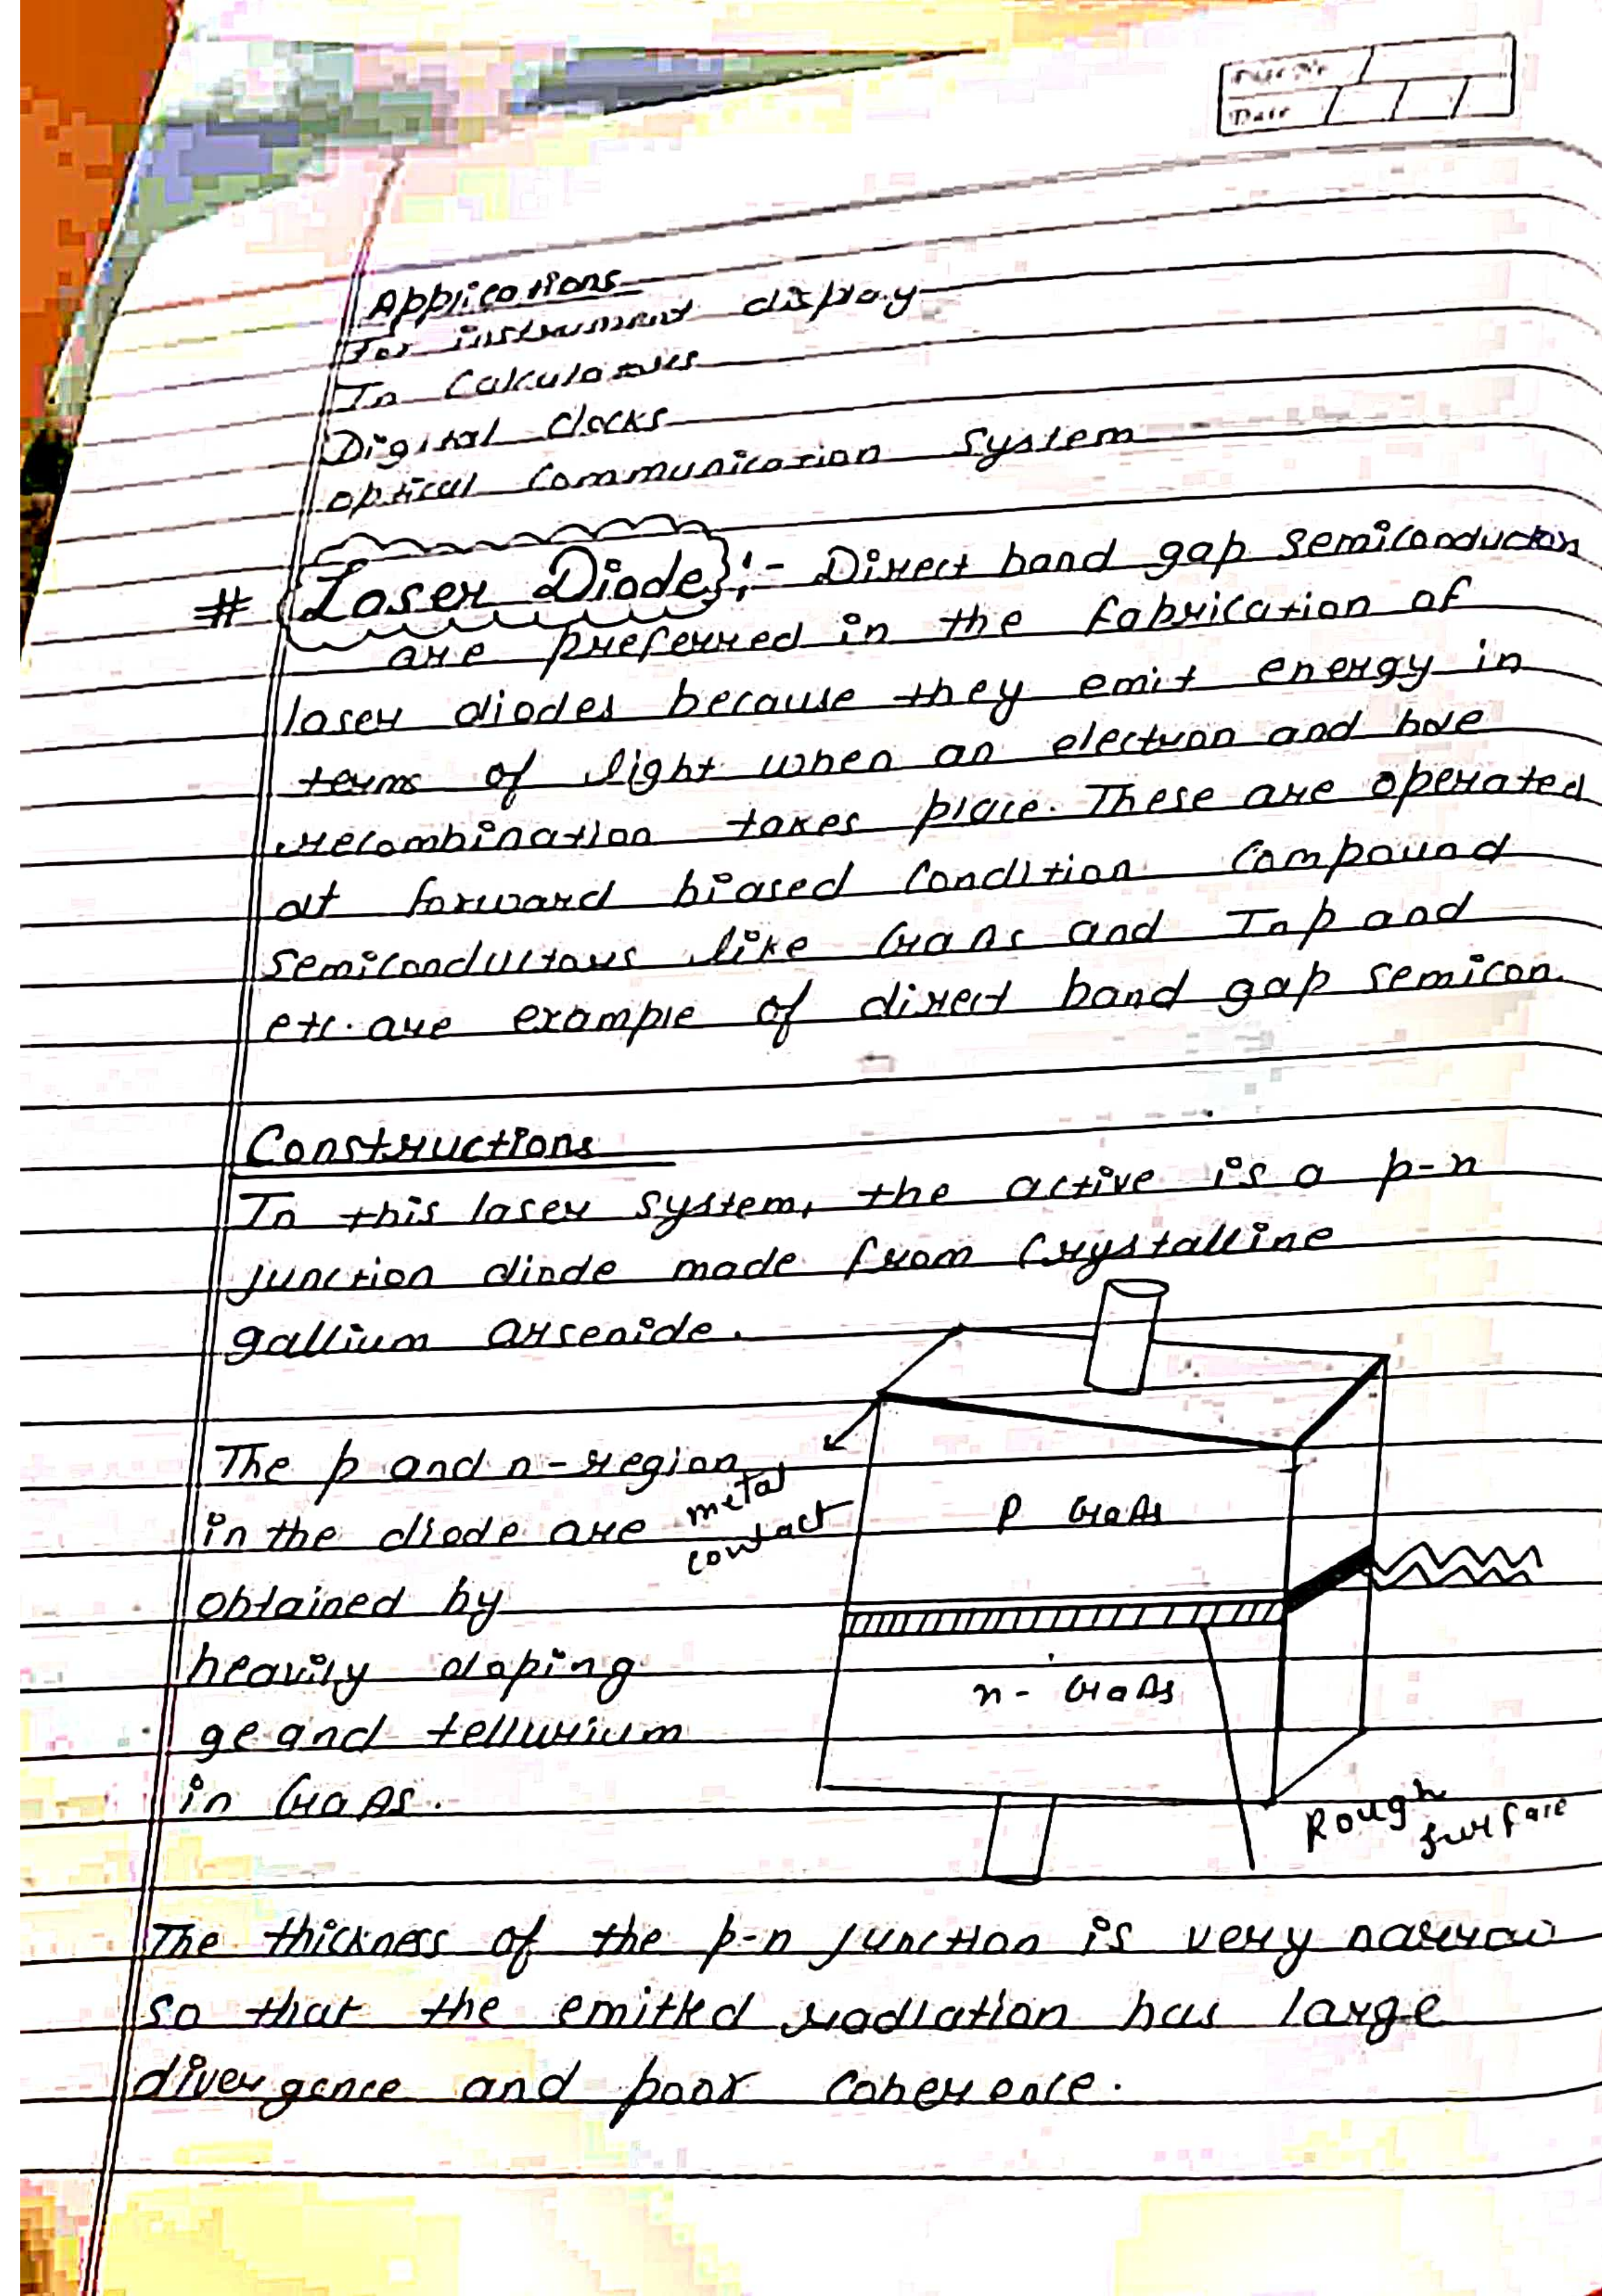 Page No.
Date
Applications
For instrument display
In Calculators
Digital Clocks
optical Communication System
# Laser Diode :- Direct band gap semiconductors
are preferred in the fabrication of
laser diodes because they emit energy in
terms of light when an electron and hole
recombination takes place. These are operated
at forward biased Condition. Compound
semiconductors like GaAs and InP and
etc. are example of direct band gap semicon.
Constructions
In this laser system, the active is a p-n
junction diode made from Crystalline
gallium arsenide.
The p and n-region
in the diode are
obtained by
heavily doping
ge and tellurium
in GaAs.
metal
contact
P GaAs
n- GaAs
Rough
surface
The thickness of the p-n junction is very narrow
so that the emitted radiation has large
divergence and poor coherence.